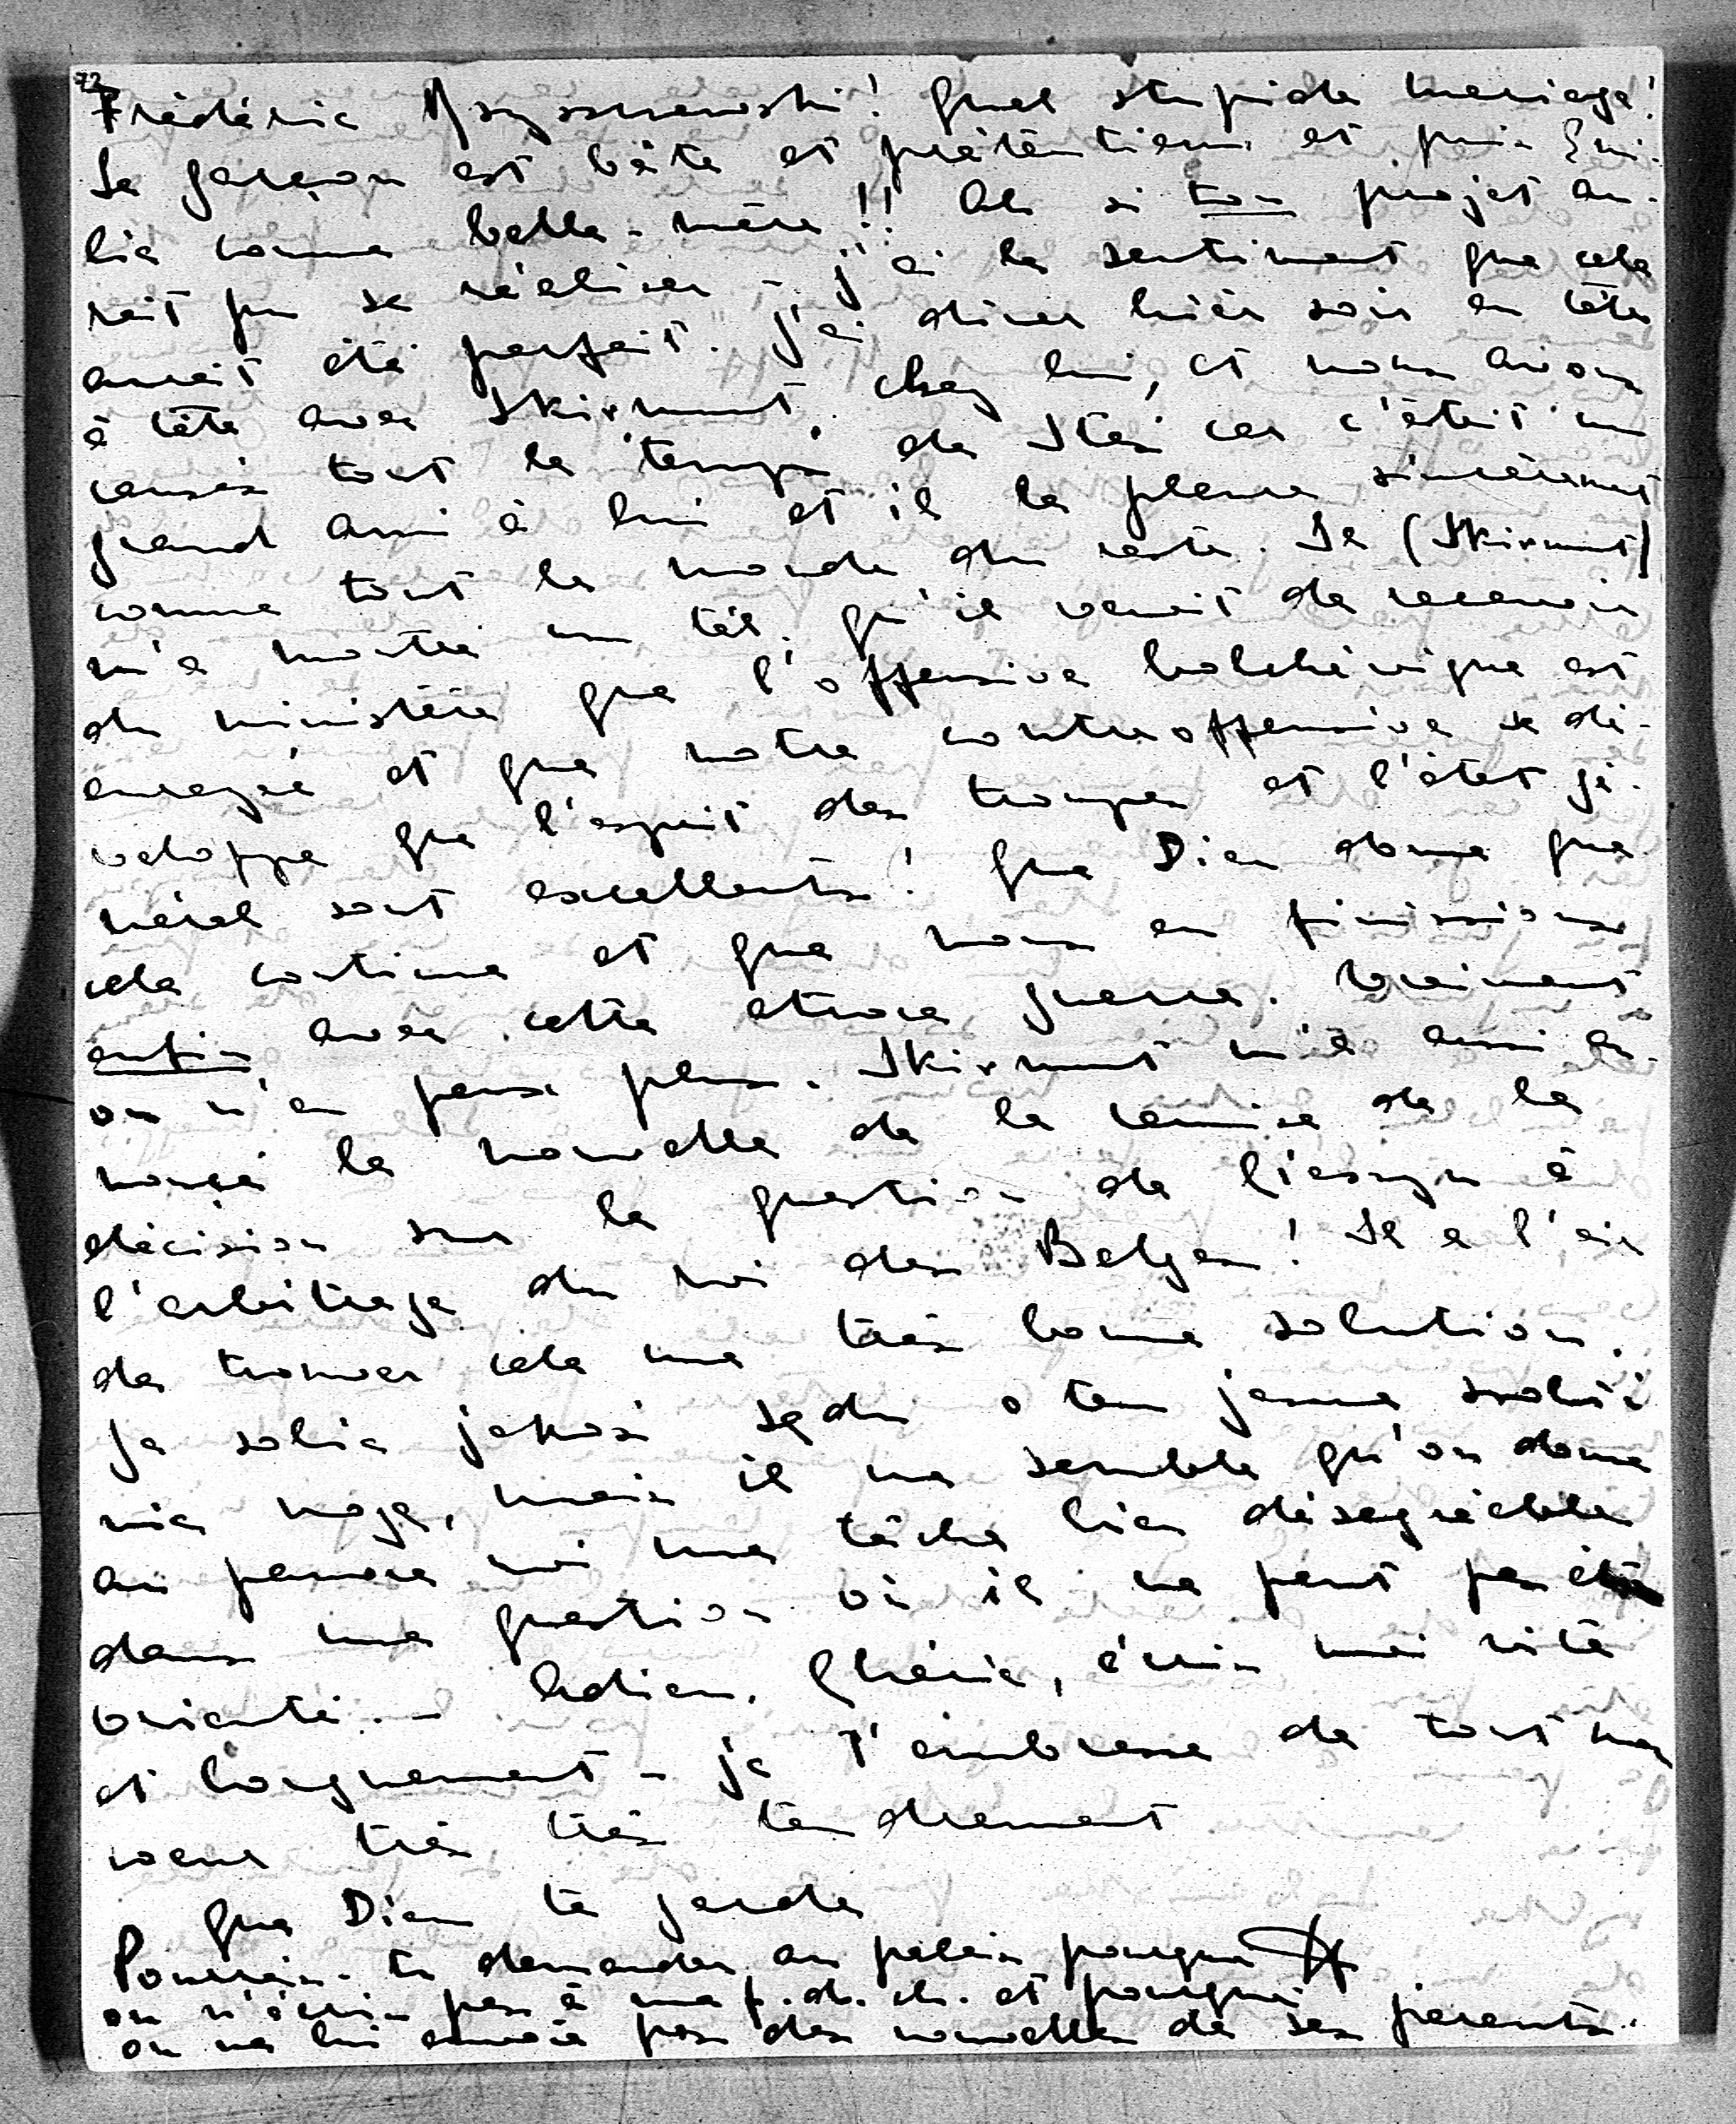 72
Frédéric Myszkowski! Quel stupide mariage!
Le garçon est bête et prétentieux et puis Emi-
lie comme belle-mère!! Ah si ton projet au-
rait pu se réaliser - j'ai le sentiment que cela
aurait été parfait. J'ai diner hier soir en tête
à tête avec Skirmunt chez lui, et nous avons
causés tout le temps de Stas car c'était un
grand ami à lui et il le pleure sincèrement
comme tout le monde du reste. Il (Skirmunt)
m'a montré un tél. qu'il venait de recevoir
du ministère que l'offensive bolchévique est
enrayée et que notre contreoffensive se dé-
veloppe que l'esprit des troupes et l'état gé-
néral sont excellents! Que Dieu donne que
cela continue et que nous en finissions
enfin avec cette atroce guerre. Vraiment
on n'en peux plus. Skirmunt m'a aussi an-
noncé la nouvelle de la remise de la
décision sur la question de Cieszyn à
l'arbitrage du roi des Belges! Il a l'air
de trouver cela une très bonne solution.
Ja sobie jakoś sądu o tem jasno zrobić
nie mogę, mais il me semble qu'on donne
au pauvre roi une tâche bien désagréable
dans une question où il ne peut pas être
orienté. - Adieu, Chérie, écris moi vite
et longuement - je t'embrasse de tout mon
coeur très très tendrement
Que Dieu te garde
Pourrais-tu demander au palais pourquoi
on n'écris pas à ma f. d. ch. et pourquoi
on ne lui envoie pas des nouvelles de ses parents.